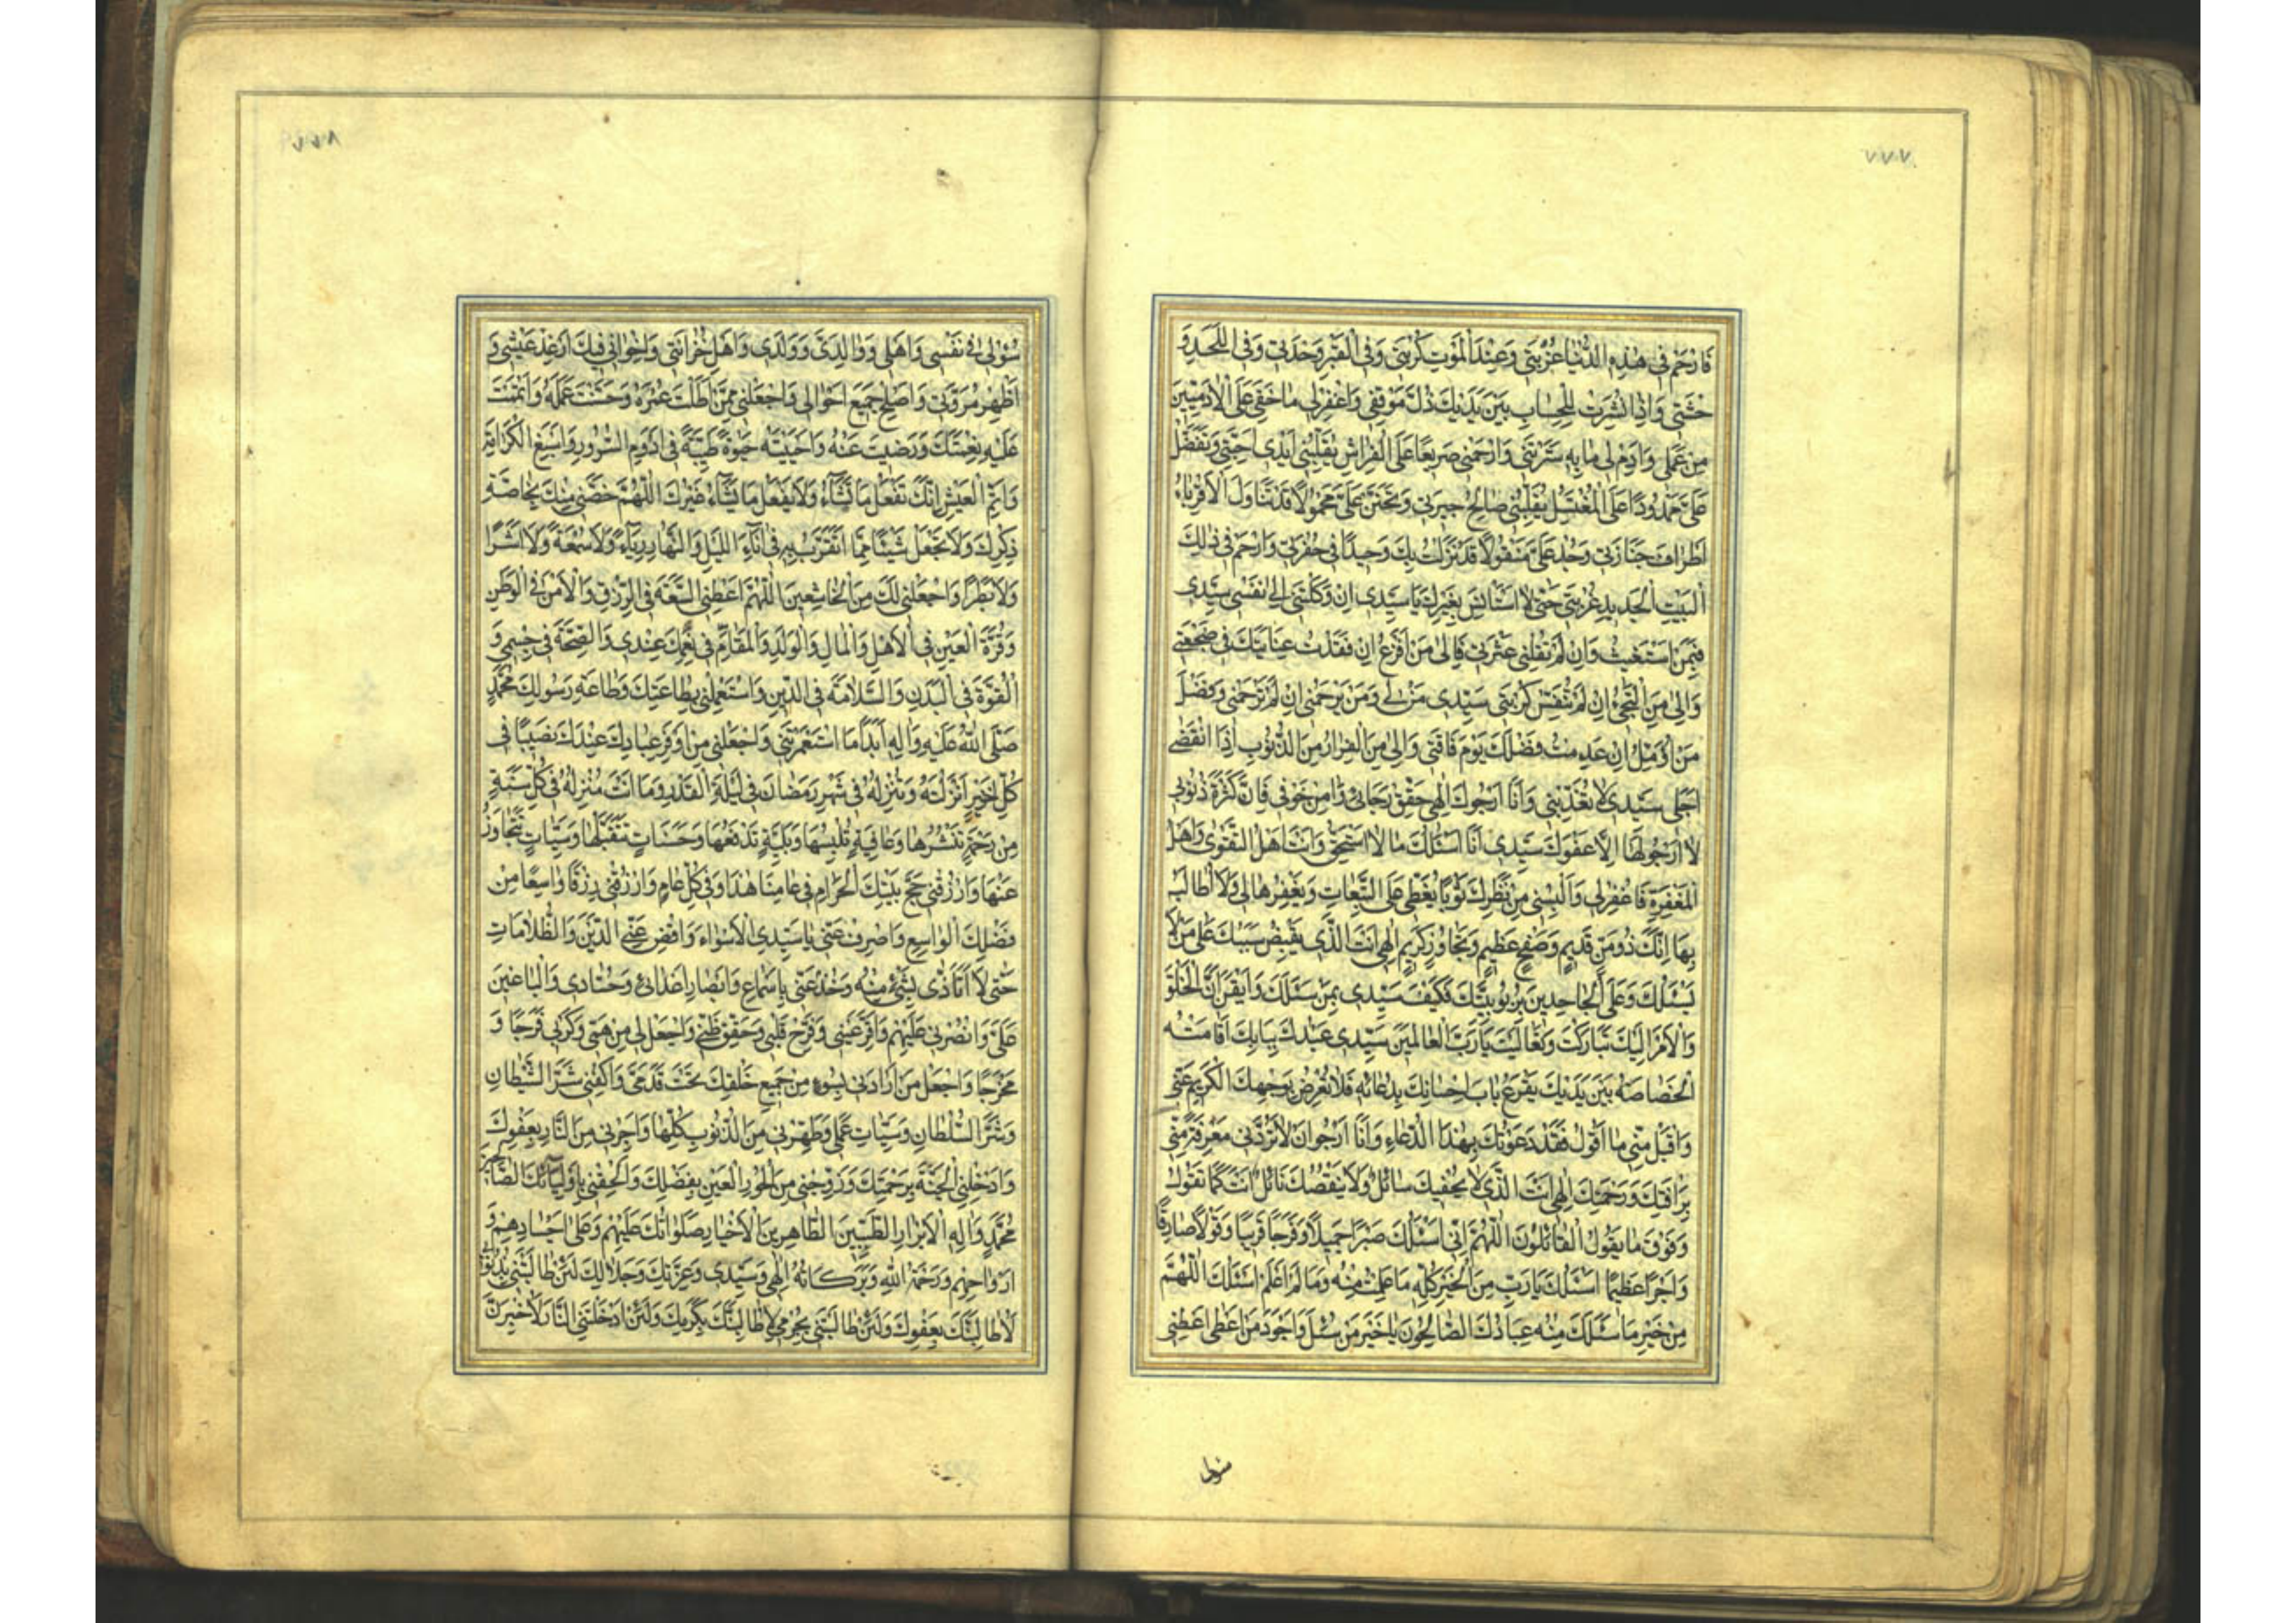 ٧٧٧
فَارْحَمْ فِي هٰذِهِ الدُّنْيَا غُرْبَتِي وَعِنْدَ الْمَوْتِ كُرْبَتِي وَفِي الْقَبْرِ وَحْدَتِي وَفِي اللَّحْدِ وَ
حْشَتِي وَاِذَا نُشِرْتُ لِلْحِسَابِ بَيْنَ يَدَيْكَ ذُلَّ مَوْقِفِي وَاغْفِرْ لِي مَا خَفِيَ عَلَى الْاٰدَمِيِّينَ
مِنْ عَمَلِي وَاَدِمْ لِي مَا بِهِ سَتَرْتَنِي وَارْحَمْنِي صَرِيعًا عَلَى الْفِرَاشِ تُقَلِّبُنِي اَيْدِي اَحِبَّتِي وَتَفَضَّلْ
عَلَيَّ مَمْدُودًا عَلَى الْمُغْتَسَلِ يُقَلِّبُنِي صَالِحُ جِيرَتِي وَتَحَنَّنْ عَلَيَّ مَحْمُولًا قَدْ تَنَاوَلَ الْاَقْرِبَاءُ
اَطْرَافَ جَنَازَتِي وَجُدْ عَلَيَّ مَنْقُولًا قَدْ نَزَلْتُ بِكَ وَحِيدًا فِي حُفْرَتِي وَارْحَمْ فِي ذٰلِكَ
الْبَيْتِ الْجَدِيدِ غُرْبَتِي حَتّٰى لَا اَسْتَاْنِسَ بِغَيْرِكَ يَا سَيِّدِي اِنْ وَكَلْتَنِي اِلٰى نَفْسِي سَيِّدِي
فَبِمَنْ اَسْتَغِيثُ وَاِنْ لَمْ تُقِلْنِي عَثْرَتِي فَاِلٰى مَنْ اَفْزَعُ اِنْ فَقَدْتُ عِنَايَتَكَ فِي ضَجْعَتِي
وَاِلٰى مَنْ اَلْتَجِئُ اِنْ لَمْ تُنَفِّسْ كُرْبَتِي سَيِّدِي مَنْ لِي وَمَنْ يَرْحَمُنِي اِنْ لَمْ تَرْحَمْنِي وَفَضْلَ
مَنْ اُؤَمِّلُ اِنْ عَدِمْتُ فَضْلَكَ يَوْمَ فَاقَتِي وَاِلٰى مَنِ الْفِرَارُ مِنَ الذُّنُوبِ اِذَا انْقَضٰى
اَجَلِي سَيِّدِي لَا تُعَذِّبْنِي وَاَنَا اَرْجُوكَ اِلٰهِي حَقِّقْ رَجَائِي وَاٰمِنْ خَوْفِي فَاِنَّ كَثْرَةَ ذُنُوبِي
لَا اَرْجُو لَهَا اِلَّا عَفْوَكَ سَيِّدِي اَنَا اَسْئَلُكَ مَا لَا اَسْتَحِقُّ وَاَنْتَ اَهْلُ التَّقْوٰى وَاَهْلُ
الْمَغْفِرَةِ فَاغْفِرْ لِي وَاَلْبِسْنِي مِنْ نَظَرِكَ ثَوْبًا يُغَطِّي عَلَيَّ التَّبِعَاتِ وَتَغْفِرُهَا لِي وَلَا اُطَالَبُ
بِهَا اِنَّكَ ذُو مَنٍّ قَدِيمٍ وَصَفْحٍ عَظِيمٍ وَتَجَاوُزٍ كَرِيمٍ اِلٰهِي اَنْتَ الَّذِي يَفِيضُ سَيْبُكَ عَلٰى مَنْ لَا
يَسْئَلُكَ وَعَلَى الْجَاحِدِينَ بِرُبُوبِيَّتِكَ فَكَيْفَ سَيِّدِي بِمَنْ سَئَلَكَ وَاَيْقَنَ اَنَّ الْخَلْقَ
وَالْاَمْرَ اِلَيْكَ تَبَارَكْتَ وَتَعَالَيْتَ يَا رَبَّ الْعَالَمِينَ سَيِّدِي عَبْدُكَ بِبَابِكَ اَقَامَتْهُ
الْخَصَاصَةُ بَيْنَ يَدَيْكَ يَقْرَعُ بَابَ اِحْسَانِكَ بِدُعَائِهِ فَلَا تُعْرِضْ بِوَجْهِكَ الْكَرِيمِ عَنِّي
وَاقْبَلْ مِنِّي مَا اَقُولُ فَقَدْ دَعَوْتُكَ بِهٰذَا الدُّعَاءِ وَاَنَا اَرْجُو اَنْ لَا تَرُدَّنِي مَعْرِفَةً مِنِّي
بِرَاْفَتِكَ وَرَحْمَتِكَ اِلٰهِي اَنْتَ الَّذِي لَا يُحْفِيكَ سَائِلٌ وَلَا يَنْقُصُكَ نَائِلٌ اَنْتَ كَمَا تَقُولُ
وَفَوْقَ مَا يَقُولُ الْقَائِلُونَ اَللّٰهُمَّ اِنِّي اَسْئَلُكَ صَبْرًا جَمِيلًا وَفَرَجًا قَرِيبًا وَقَوْلًا صَادِقًا
وَاَجْرًا عَظِيمًا اَسْئَلُكَ يَا رَبِّ مِنَ الْخَيْرِ كُلِّهِ مَا عَلِمْتُ مِنْهُ وَمَا لَمْ اَعْلَمْ اَسْئَلُكَ اللّٰهُمَّ
مِنْ خَيْرِ مَا سَئَلَكَ مِنْهُ عِبَادُكَ الصَّالِحُونَ يَا خَيْرَ مَنْ سُئِلَ وَاَجْوَدَ مَنْ اَعْطٰى اَعْطِنِي
سُؤْلِي
٧٧٨
سُؤْلِي فِي نَفْسِي وَاَهْلِي وَوَالِدَيَّ وَوَلَدِي وَاَهْلِ حُزَانَتِي وَاِخْوَانِي فِيكَ اَرْغِدْ عَيْشِي وَ
اَظْهِرْ مُرُوَّتِي وَاَصْلِحْ جَمِيعَ اَحْوَالِي وَاجْعَلْنِي مِمَّنْ اَطَلْتَ عُمْرَهُ وَحَسَّنْتَ عَمَلَهُ وَاَتْمَمْتَ
عَلَيْهِ نِعْمَتَكَ وَرَضِيتَ عَنْهُ وَاَحْيَيْتَهُ حَيٰوةً طَيِّبَةً فِي اَدْوَمِ السُّرُورِ وَاَسْبَغِ الْكَرَامَةِ
وَاَتَمِّ الْعَيْشِ اِنَّكَ تَفْعَلُ مَا تَشَاءُ وَلَا يَفْعَلُ مَا يَشَاءُ غَيْرُكَ اَللّٰهُمَّ خُصَّنِي مِنْكَ بِخَاصَّةِ
ذِكْرِكَ وَلَا تَجْعَلْ شَيْئًا مِمَّا اَتَقَرَّبُ بِهِ فِي اٰنَاءِ اللَّيْلِ وَالنَّهَارِ رِيَاءً وَلَا سُمْعَةً وَلَا اَشَرًا
وَلَا بَطَرًا وَاجْعَلْنِي لَكَ مِنَ الْخَاشِعِينَ اَللّٰهُمَّ اَعْطِنِي السَّعَةَ فِي الرِّزْقِ وَالْاَمْنَ فِي الْوَطَنِ
وَقُرَّةَ الْعَيْنِ فِي الْاَهْلِ وَالْمَالِ وَالْوَلَدِ وَالْمُقَامَ فِي نِعَمِكَ عِنْدِي وَالصِّحَّةَ فِي جِسْمِي وَ
الْقُوَّةَ فِي الْبَدَنِ وَالسَّلَامَةَ فِي الدِّينِ وَاسْتَعْمِلْنِي بِطَاعَتِكَ وَطَاعَةِ رَسُولِكَ مُحَمَّدٍ
صَلَّى اللّٰهُ عَلَيْهِ وَاٰلِهِ اَبَدًا مَا اسْتَعْمَرْتَنِي وَاجْعَلْنِي مِنْ اَوْفَرِ عِبَادِكَ عِنْدَكَ نَصِيبًا فِي
كُلِّ خَيْرٍ اَنْزَلْتَهُ وَتُنْزِلُهُ فِي شَهْرِ رَمَضَانَ فِي لَيْلَةِ الْقَدْرِ وَمَا اَنْتَ مُنْزِلُهُ فِي كُلِّ سَنَةٍ
مِنْ رَحْمَةٍ تَنْشُرُهَا وَعَافِيَةٍ تُلْبِسُهَا وَبَلِيَّةٍ تَدْفَعُهَا وَحَسَنَاتٍ تَتَقَبَّلُهَا وَسَيِّئَاتٍ تَتَجَاوَزُ
عَنْهَا وَارْزُقْنِي حَجَّ بَيْتِكَ الْحَرَامِ فِي عَامِنَا هٰذَا وَفِي كُلِّ عَامٍ وَارْزُقْنِي رِزْقًا وَاسِعًا مِنْ
فَضْلِكَ الْوَاسِعِ وَاصْرِفْ عَنِّي يَا سَيِّدِي الْاَسْوَاءَ وَاقْضِ عَنِّي الدَّيْنَ وَالظُّلَامَاتِ
حَتّٰى لَا اَتَاَذّٰى بِشَيْءٍ مِنْهُ وَخُذْ عَنِّي بِاَسْمَاعِ وَاَبْصَارِ اَعْدَائِي وَحُسَّادِي وَالْبَاغِينَ
عَلَيَّ وَانْصُرْنِي عَلَيْهِمْ وَاَقِرَّ عَيْنِي وَفَرِّحْ قَلْبِي وَحَقِّقْ ظَنِّي وَاجْعَلْ لِي مِنْ هَمِّي وَكَرْبِي فَرَجًا وَ
مَخْرَجًا وَاجْعَلْ مَنْ اَرَادَنِي بِسُوءٍ مِنْ جَمِيعِ خَلْقِكَ تَحْتَ قَدَمَيَّ وَاكْفِنِي شَرَّ الشَّيْطَانِ
وَشَرَّ السُّلْطَانِ وَسَيِّئَاتِ عَمَلِي وَطَهِّرْنِي مِنَ الذُّنُوبِ كُلِّهَا وَاَجِرْنِي مِنَ النَّارِ بِعَفْوِكَ
وَاَدْخِلْنِي الْجَنَّةَ بِرَحْمَتِكَ وَزَوِّجْنِي مِنَ الْحُورِ الْعِينِ بِفَضْلِكَ وَاَلْحِقْنِي بِاَوْلِيَائِكَ الصَّالِحِينَ
مُحَمَّدٍ وَاٰلِهِ الْاَبْرَارِ الطَّيِّبِينَ الطَّاهِرِينَ الْاَخْيَارِ صَلَوَاتُكَ عَلَيْهِمْ وَعَلٰى اَجْسَادِهِمْ وَ
اَرْوَاحِهِمْ وَرَحْمَةُ اللّٰهِ وَبَرَكَاتُهُ اِلٰهِي وَسَيِّدِي وَعِزَّتِكَ وَجَلَالِكَ لَئِنْ طَالَبْتَنِي بِذُنُوبِي
لَاُطَالِبَنَّكَ بِعَفْوِكَ وَلَئِنْ طَالَبْتَنِي بِجُرْمِي لَاُطَالِبَنَّكَ بِكَرَمِكَ وَلَئِنْ اَدْخَلْتَنِي النَّارَ لَاُخْبِرَنَّ